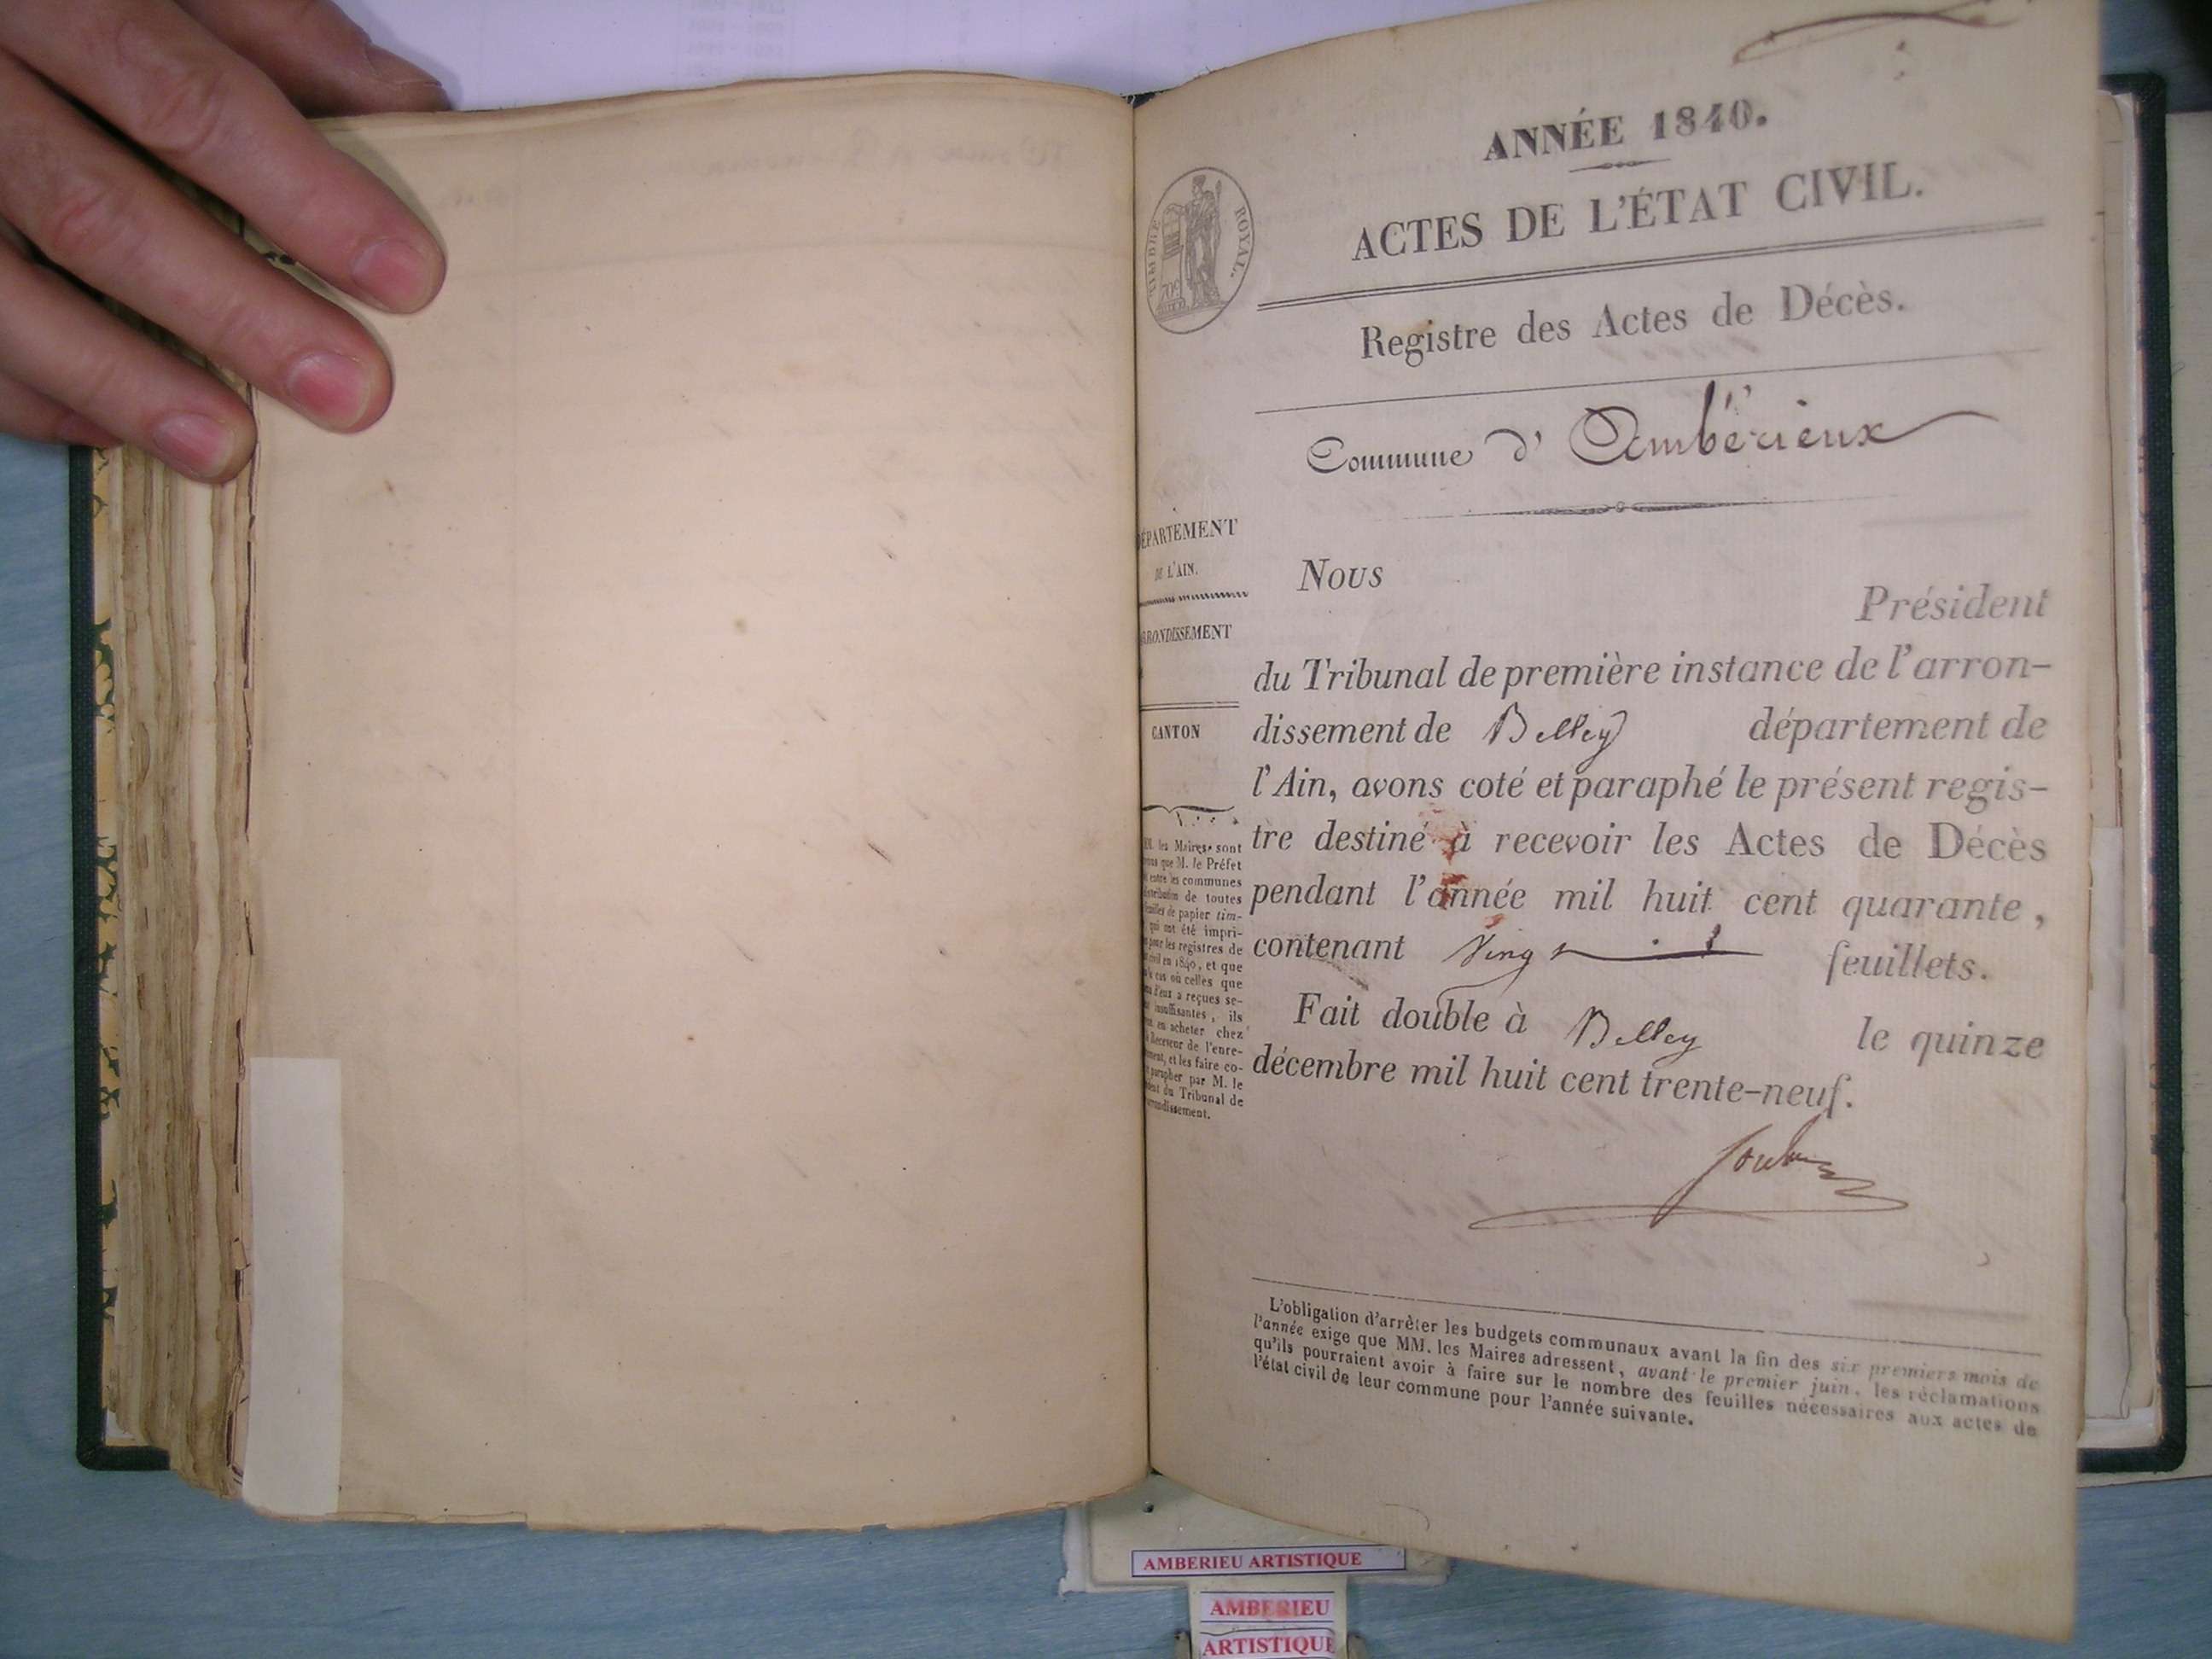 ANNÉE 1840.
ACTES DE L'ÉTAT CIVIL.
TIMBRE ROYAL.
70c
Registre des Actes de Décès.
Commune d' Ambérieux
DÉPARTEMENT
DE L'AIN.
ARRONDISSEMENT
CANTON
MM. les Maires sont
que M. le Préfet
entre les communes
de toutes
de papier tim-
qui ont été impri-
pour les registres de
civil en 1840, et que
le cas où celles que
d'eux a reçues se-
insuffisantes, ils
en acheter chez
Receveur de l'enre-
et les faire co-
parapher par M. le
du Tribunal de
Nous
Président
du Tribunal de première instance de l'arron-
dissement de Belley département de
l'Ain, avons coté et paraphé le présent regis-
tre destiné à recevoir les Actes de Décès
pendant l'année mil huit cent quarante,
contenant Vingt feuillets.
Fait double à Belley le quinze
décembre mil huit cent trente-neuf.
L'obligation d'arrêter les budgets communaux avant la fin des six premiers mois de
l'année exige que MM. les Maires adressent, avant le premier juin, les réclamations
qu'ils pourraient avoir à faire sur le nombre des feuilles nécessaires aux actes de
l'état civil de leur commune pour l'année suivante.
AMBERIEU ARTISTIQUE
AMBERIEU
ARTISTIQUE